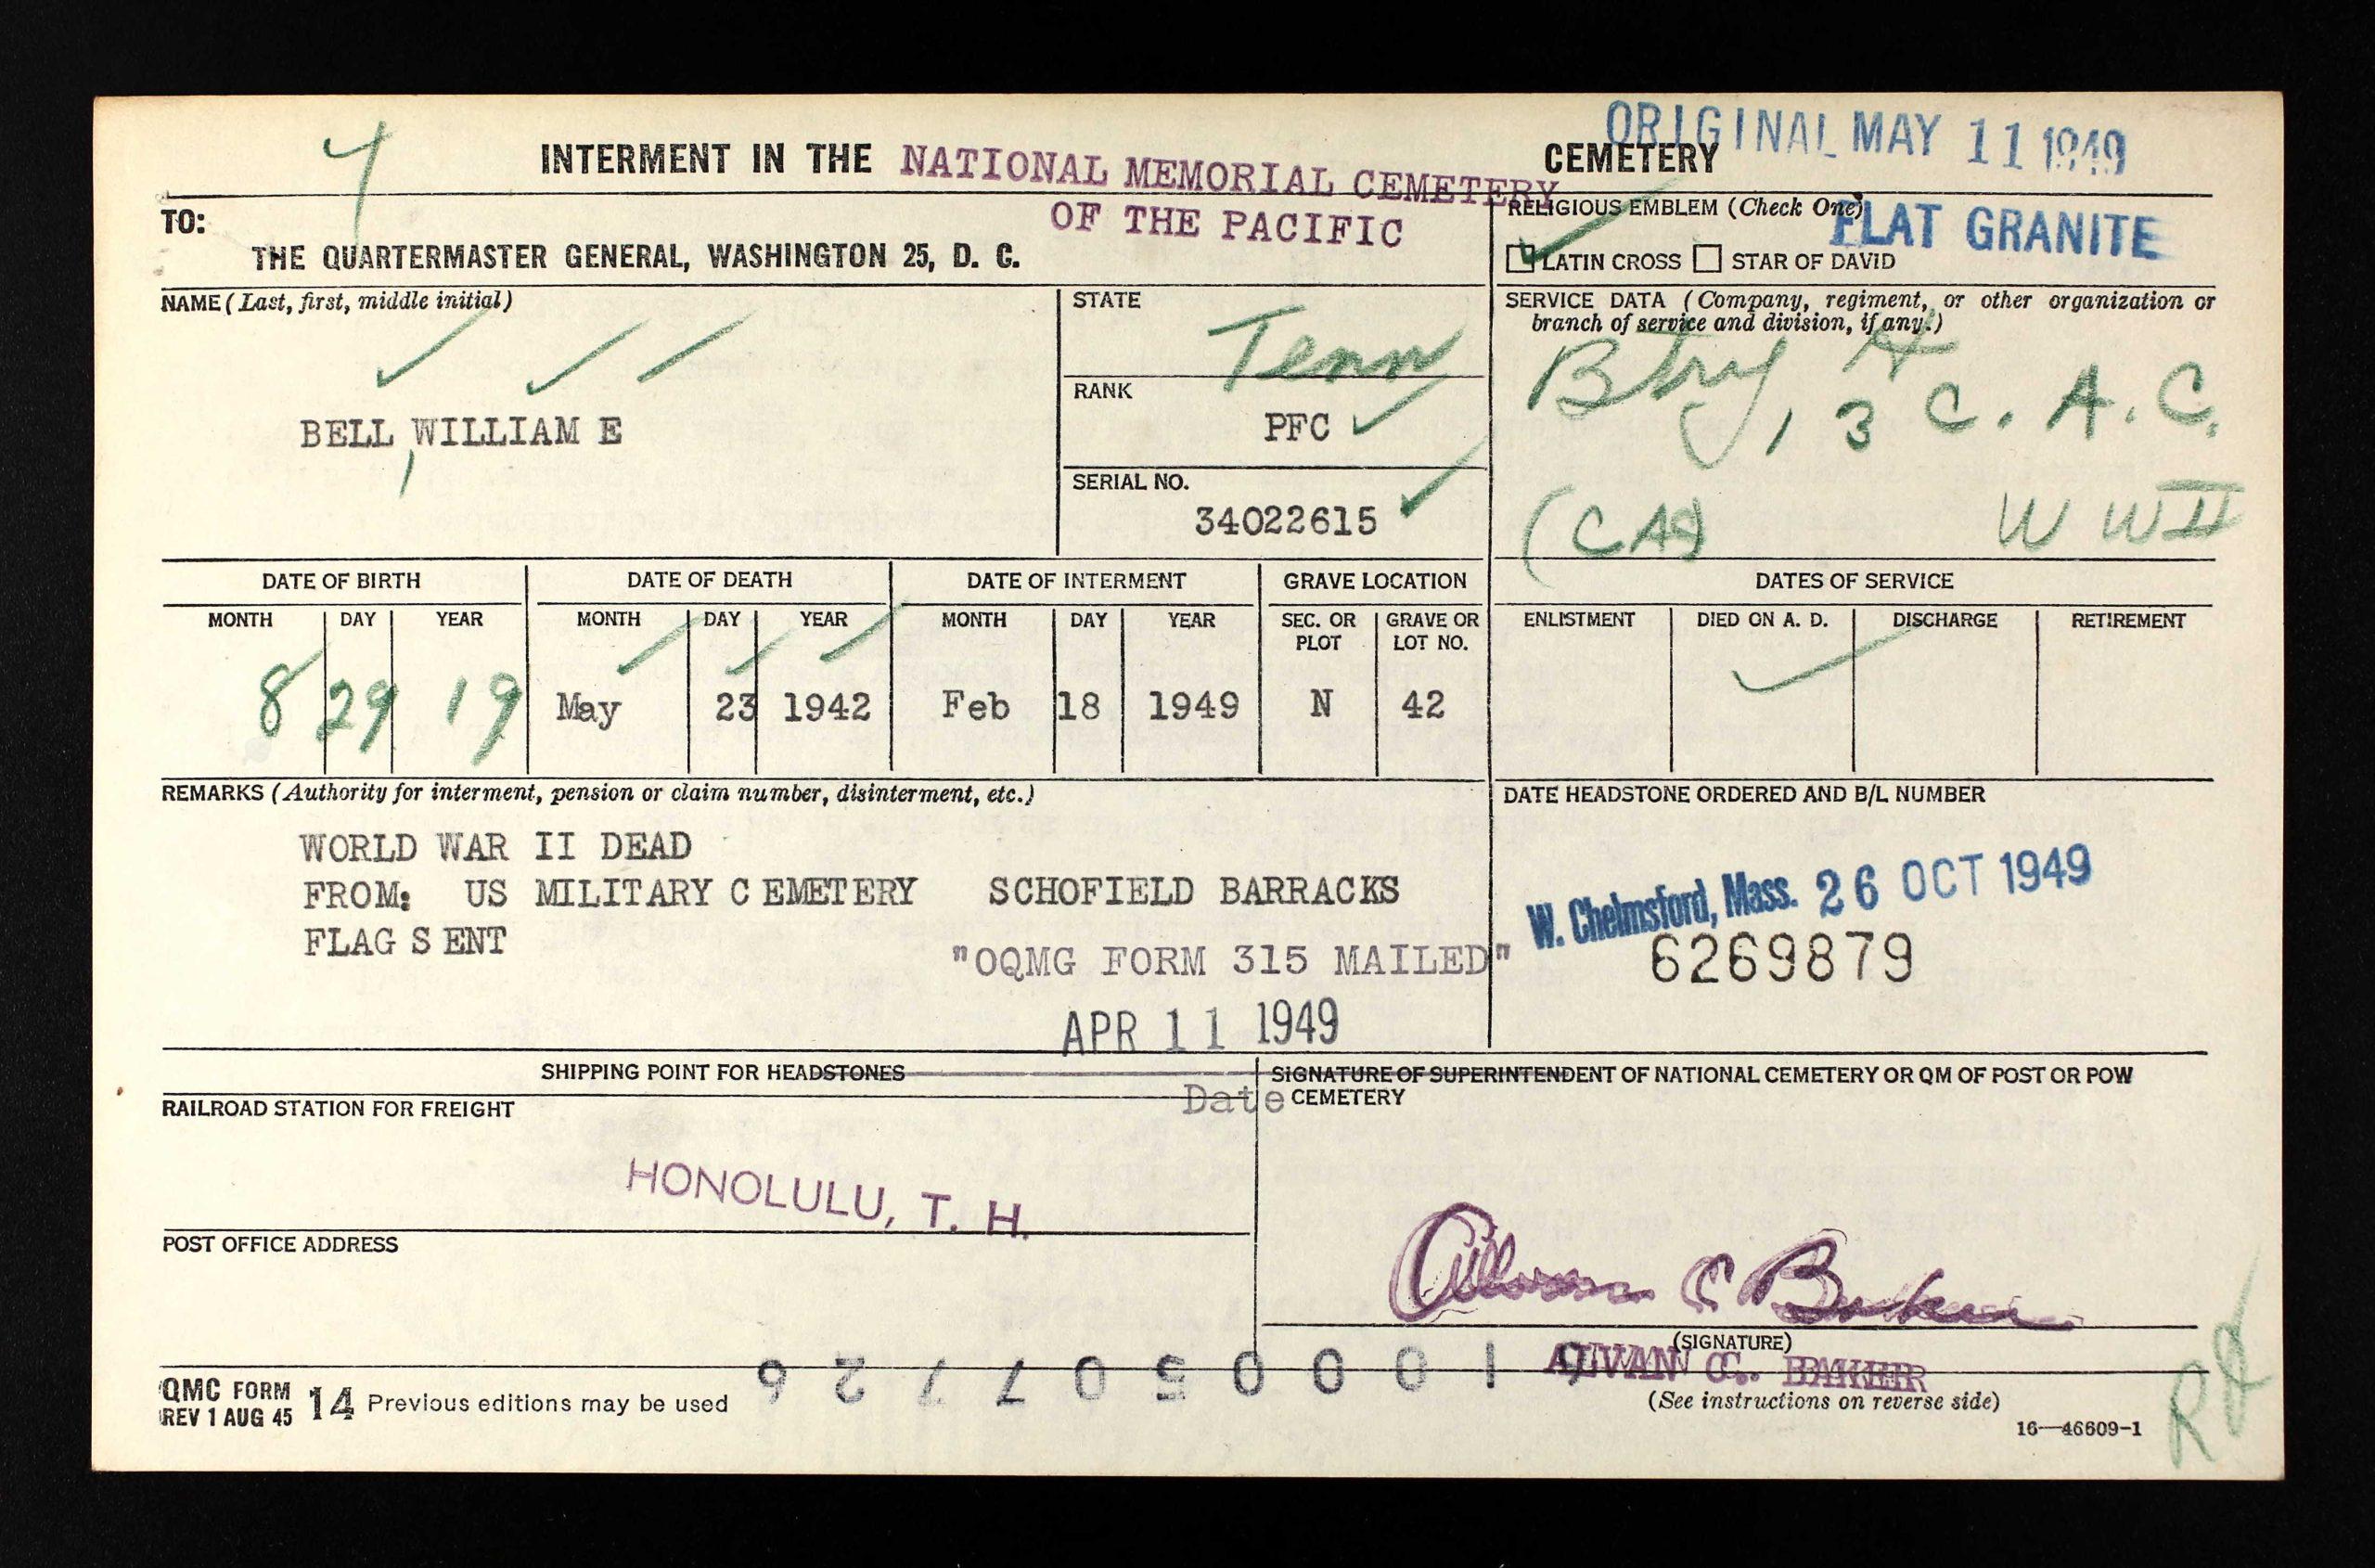 4
ORIGINAL MAY 11 1949
INTERMENT IN THE NATIONAL MEMORIAL CEMETERY OF THE PACIFIC CEMETERY
TO:
THE QUARTERMASTER GENERAL, WASHINGTON 25, D. C.
RELIGIOUS EMBLEM (Check One)
FLAT GRANITE
LATIN CROSS STAR OF DAVID
NAME (Last, first, middle initial)
BELL, WILLIAM E
STATE
Tenn
RANK
PFC
SERIAL NO.
34022615
SERVICE DATA (Company, regiment, or other organization or
branch of service and division, if any.)
Btry A
13 C. A. C.
(CA) W W II
DATE OF BIRTH DATE OF DEATH DATE OF INTERMENT GRAVE LOCATION DATES OF SERVICE
MONTH DAY YEAR MONTH DAY YEAR MONTH DAY YEAR SEC. OR PLOT GRAVE OR LOT NO. ENLISTMENT DIED ON A. D. DISCHARGE RETIREMENT
8 29 19 May 23 1942 Feb 18 1949 N 42
REMARKS (Authority for interment, pension or claim number, disinterment, etc.)
WORLD WAR II DEAD
FROM: US MILITARY C EMETERY SCHOFIELD BARRACKS
FLAG S ENT
"OQMG FORM 315 MAILED"
APR 11 1949
Date
DATE HEADSTONE ORDERED AND B/L NUMBER
W. Chelmsford, Mass. 26 OCT 1949
6269879
SHIPPING POINT FOR HEADSTONES
RAILROAD STATION FOR FREIGHT
HONOLULU, T. H.
POST OFFICE ADDRESS
SIGNATURE OF SUPERINTENDENT OF NATIONAL CEMETERY OR QM OF POST OR POW
CEMETERY
(SIGNATURE)
(See instructions on reverse side)
QMC FORM 14 Previous editions may be used
REV 1 AUG 45
16—46609-1